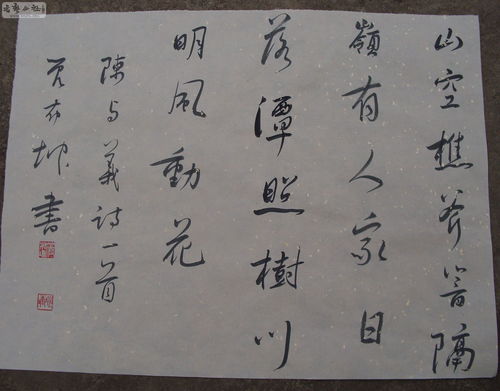 山空樵斧響隔
嶺有人家日
落潭照樹川
明風動花
陳与義詩一首
坤書